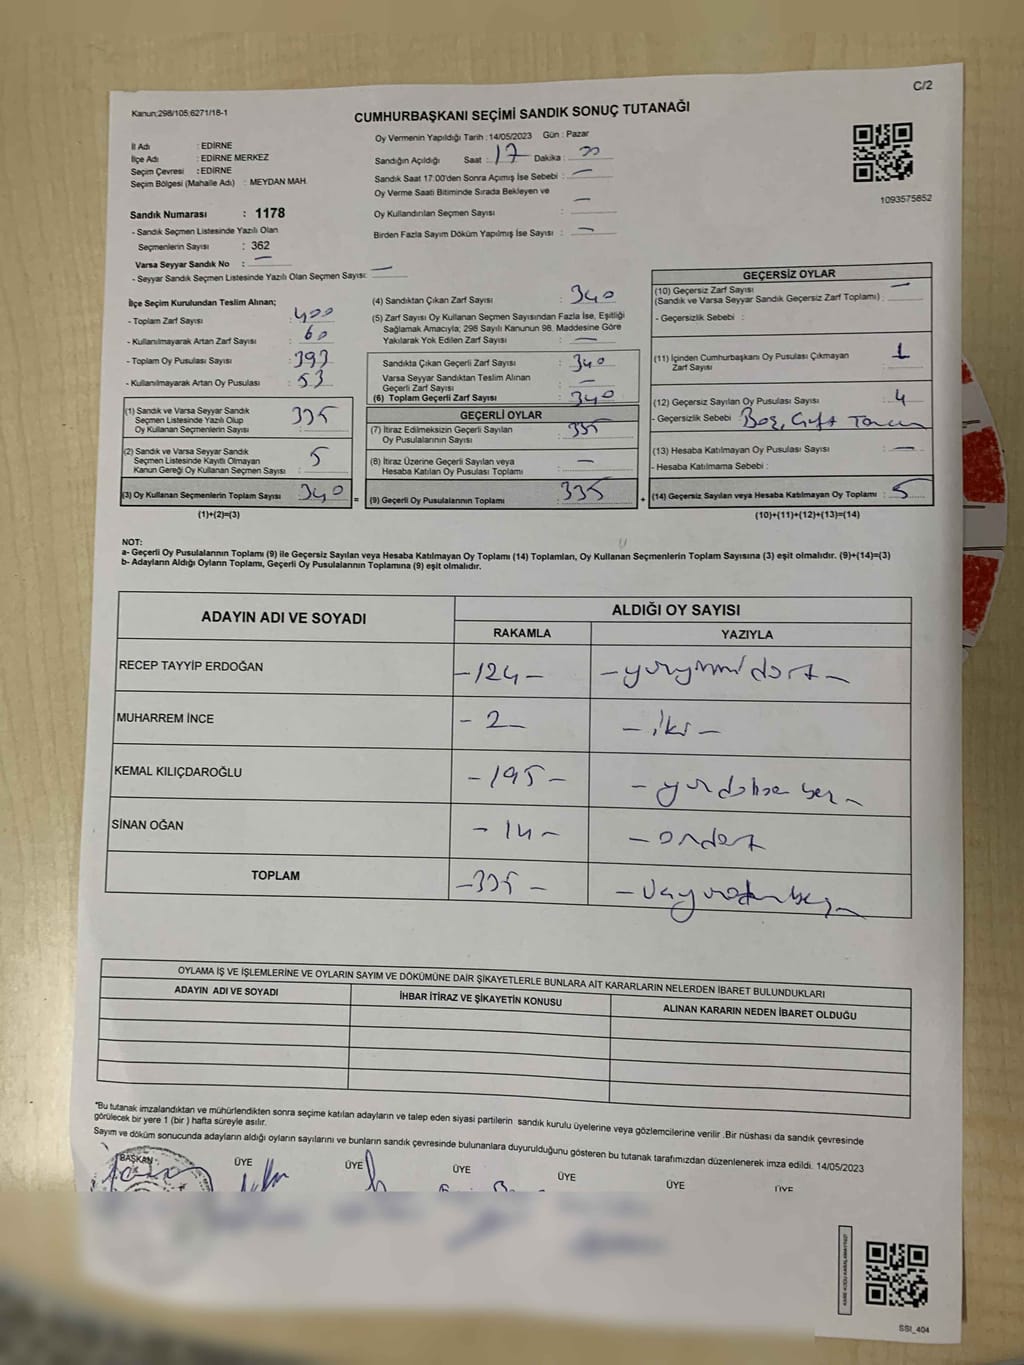 C/2
Kanun;298/105;6271/18-1
CUMHURBAŞKANI SEÇİMİ SANDIK SONUÇ TUTANAĞI
İl Adı : EDİRNE
İlçe Adı : EDİRNE MERKEZ
Seçim Çevresi : EDİRNE
Seçim Bölgesi (Mahalle Adı) : MEYDAN MAH.
Sandık Numarası : 1178
- Sandık Seçmen Listesinde Yazılı Olan
Seçmenlerin Sayısı : 362
Varsa Seyyar Sandık No : —
- Seyyar Sandık Seçmen Listesinde Yazılı Olan Seçmen Sayısı: —
Oy Vermenin Yapıldığı Tarih : 14/05/2023 Gün : Pazar
Sandığın Açıldığı Saat : 17 Dakika : 00
Sandık Saat 17:00'den Sonra Açımış İse Sebebi : —
Oy Verme Saati Bitiminde Sırada Bekleyen ve
Oy Kullandırılan Seçmen Sayısı : —
Birden Fazla Sayım Döküm Yapılmış İse Sayısı : —
1093575852
İlçe Seçim Kurulundan Teslim Alınan;
- Toplam Zarf Sayısı : 400
- Kullanılmayarak Artan Zarf Sayısı : 60
- Toplam Oy Pusulası Sayısı : 393
- Kullanılmayarak Artan Oy Pusulası : 53
(1) Sandık ve Varsa Seyyar Sandık
Seçmen Listesinde Yazılı Olup
Oy Kullanan Seçmenlerin Sayısı : 335
(2) Sandık ve Varsa Seyyar Sandık
Seçmen Listesinde Kayıtlı Olmayan
Kanun Gereği Oy Kullanan Seçmen Sayısı : 5
(3) Oy Kullanan Seçmenlerin Toplam Sayısı : 340
(1)+(2)=(3)
(4) Sandıktan Çıkan Zarf Sayısı : 340
(5) Zarf Sayısı Oy Kullanan Seçmen Sayısından Fazla İse, Eşitliği
Sağlamak Amacıyla; 298 Sayılı Kanunun 98. Maddesine Göre
Yakılarak Yok Edilen Zarf Sayısı : —
Sandıkta Çıkan Geçerli Zarf Sayısı : 340
Varsa Seyyar Sandıktan Teslim Alınan
Geçerli Zarf Sayısı : —
(6) Toplam Geçerli Zarf Sayısı : 340
GEÇERLİ OYLAR
(7) İtiraz Edilmeksizin Geçerli Sayılan
Oy Pusulalarının Sayısı : 335
(8) İtiraz Üzerine Geçerli Sayılan veya
Hesaba Katılan Oy Pusulası Toplamı : —
= (9) Geçerli Oy Pusulalarının Toplamı : 335
GEÇERSİZ OYLAR
(10) Geçersiz Zarf Sayısı
(Sandık ve Varsa Seyyar Sandık Geçersiz Zarf Toplamı) : —
- Geçersizlik Sebebi :
(11) İçinden Cumhurbaşkanı Oy Pusulası Çıkmayan
Zarf Sayısı : 1
(12) Geçersiz Sayılan Oy Pusulası Sayısı : 4
- Geçersizlik Sebebi : Boş, Çift
(13) Hesaba Katılmayan Oy Pusulası Sayısı : —
- Hesaba Katılmama Sebebi :
+ (14) Geçersiz Sayılan veya Hesaba Katılmayan Oy Toplamı : 5
(10)+(11)+(12)+(13)=(14)
NOT:
a- Geçerli Oy Pusulalarının Toplamı (9) ile Geçersiz Sayılan veya Hesaba Katılmayan Oy Toplamı (14) Toplamları, Oy Kullanan Seçmenlerin Toplam Sayısına (3) eşit olmalıdır. (9)+(14)=(3)
b- Adayların Aldığı Oyların Toplamı, Geçerli Oy Pusulalarının Toplamına (9) eşit olmalıdır.
ADAYIN ADI VE SOYADI ALDIĞI OY SAYISI
RAKAMLA YAZIYLA
RECEP TAYYİP ERDOĞAN -124- -yüzyirmidört-
MUHARREM İNCE -2- -iki-
KEMAL KILIÇDAROĞLU -195- -yüzdoksanbeş-
SİNAN OĞAN -14- -ondört
TOPLAM -335- -üçyüzotuzbeş-
OYLAMA İŞ VE İŞLEMLERİNE VE OYLARIN SAYIM VE DÖKÜMÜNE DAİR ŞİKAYETLERLE BUNLARA AİT KARARLARIN NELERDEN İBARET BULUNDUKLARI
ADAYIN ADI VE SOYADI İHBAR İTİRAZ VE ŞİKAYETİN KONUSU ALINAN KARARIN NEDEN İBARET OLDUĞU
"Bu tutanak imzalandıktan ve mühürlendikten sonra seçime katılan adayların ve talep eden siyasi partilerin sandık kurulu üyelerine veya gözlemcilerine verilir .Bir nüshası da sandık çevresinde
görülecek bir yere 1 (bir ) hafta süreyle asılır.
Sayım ve döküm sonucunda adayların aldığı oyların sayılarını ve bunların sandık çevresinde bulunanlara duyurulduğunu gösteren bu tutanak tarafımızdan düzenlenerek imza edildi. 14/05/2023
BAŞKAN ÜYE ÜYE ÜYE ÜYE ÜYE ÜYE
SSI_404